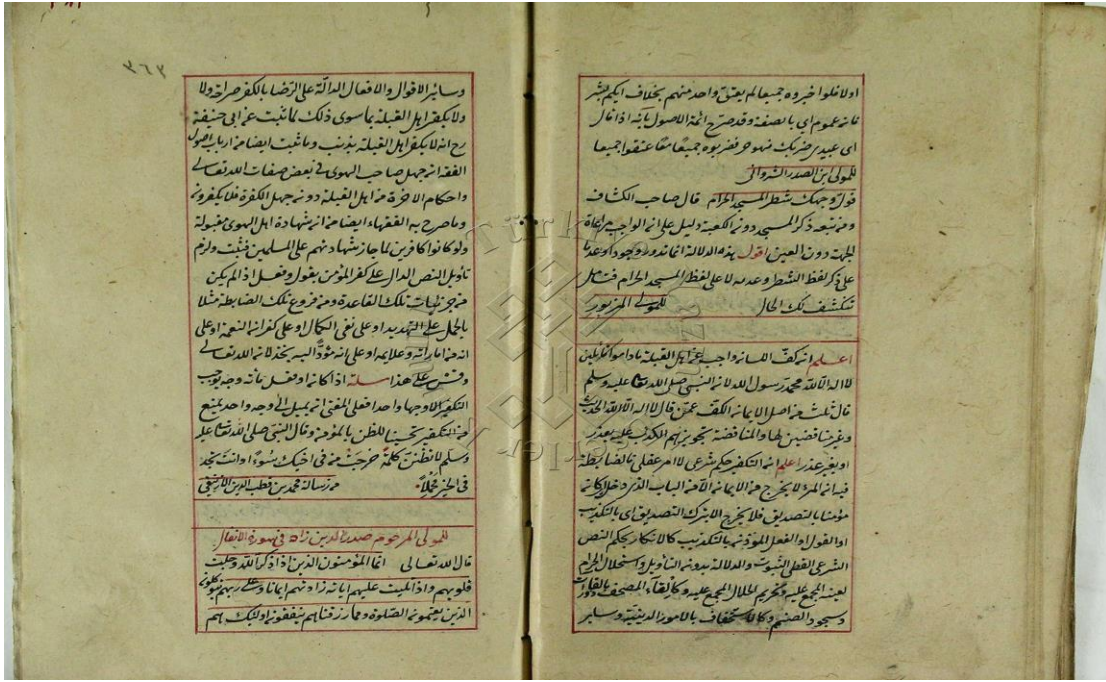 اولا فلوا خبروه جميعا لم يعتق واحد منهم بخلاف ايكم بشر
فانه عموم اى بالصفة وقد صرح ائمة الاصول بانه اذا قال
اى عبيدى ضربك فهو حر فضربوه جميعا معا عتقوا جميعا
للمولى ابن الصدر الشروانى
قول وجهك شطر المسجد الحرام قال صاحب الكشاف
ومن تبعه ذكر المسجد دون الكعبة دليل على ان الواجب مراعاة
الجهة دون العين اقول هذه الدلالة انما تدور وجودا وعدما
على ذكر لفظ الشطر وعدمه لا على لفظ المسجد الحرام فتأمل
تنكشف لك الحال للمولى المزبور
اعلم ان كف اللسان واجب عن اهل القبلة ما داموا قائلين
لا اله الا الله محمد رسول الله لان النبى صلى الله تعا عليه وسلم
قال ثلث من اصل الايمان الكف عمن قال لا اله الا الله الحديث
وغير مناقضين لها والمناقضة تجويزهم الكذب عليه بعذر
او بغير عذر اعلم ان التكفير حكم شرعى لا امر عقلى فالضابطة
فيه ان المرء لا يخرج من الايمان الا من الباب الذى دخل كان
مؤمنا بالتصديق فلا يخرج الا بترك التصديق اى بالتكذيب
او القول او الفعل المؤذن بالتكذيب كالانكار بحكم النص
الشرعى القطعى الثبوت والدلالة بدون التأويل واستحلال الحرام
لعينه المجمع عليه وتحريم الحلال المجمع عليه وكالقاء المصحف بالقاذورات
وسجود الصنم وكالاستخفاف بالامور الدينية وساير
٣٦٣
وسائر الاقوال والافعال الدالة على الرضا بالكفر صراحة ولا
ولا يكفر اهل القبلة بما سوى ذلك لما ثبت عن ابى حنيفة
رح انه لا يكفر اهل القبلة بذنب وما ثبت ايضا من ارباب اصول
الفقه ان جهل صاحب الهوى فى بعض صفات الله تعالى
واحكام الاخرة من اهل القبلة دون جهل الكفرة فلا يكفرونه
وما صرح به الفقهاء ايضا من ان شهادة اهل الهوى مقبولة
ولو كانوا كافرين لما جاز شهادتهم على المسلمين فثبت ولزم
تأويل النص الدال على كفر المؤمن بقول وفعل اذا لم يكن
من جزئيات تلك القاعدة ومن فروع تلك الضابطة مثلا
بالحمل على التهديد او على نفى الكمال او على كفران النعمة او على
انه من اماراته وعلايمه او على انه مؤد اليه بخذلان الله تعالى
وقس على هذا مسئلة اذا كان او فعل بانه وجه يوجب
التكفير الا وجها واحدا فعلى المفتى ان يميل الى وجه واحد يمنع
من التكفير تحسينا للظن بالمؤمن وقال النبى صلى الله تعا عليه
وسلم لا تظنن كلمة خرجت من فى اخيك سوءا وانت تجد
فى الخير محملا من رسالة محمد بن قطب الدين الازنيقى
للمولى المرحوم صدر الدين زاده فى سورة الانفال
قال الله تعالى انما المؤمنون الذين اذا ذكر الله وجلت
قلوبهم واذا تليت عليهم اياته زادتهم ايمانا وعلى ربهم يتوكلون
الذين يقيمون الصلوة ومما رزقناهم ينفقون اولئك هم